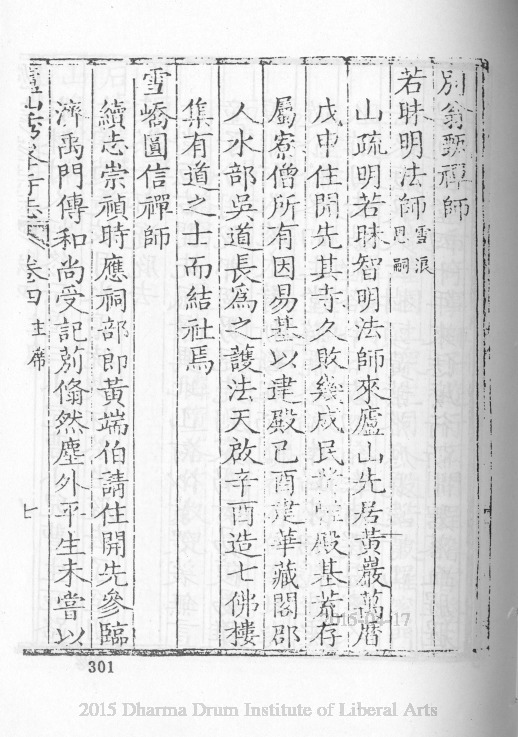 別翁甄禪師
若昧明法師 雪浪恩嗣
山疏明若昧智明法師來廬山先居黃巖萬曆
戊申住開先其寺久敗幾成民業雖殿基荒存
屬寮僧所有因易基以建殿己酉建華藏閣邵
人水部吳道長為之護法天啟辛酉造七佛樓
集有道之士而結社焉
雪嶠圓信禪師
續志崇禎時應祠部郎黃端伯請住開先參臨
濟禹門傳和尚受記莂翛然塵外平生未嘗以
廬山秀峯寺志 卷四 主席 七
301
2015 Dharma Drum Institute of Liberal Arts